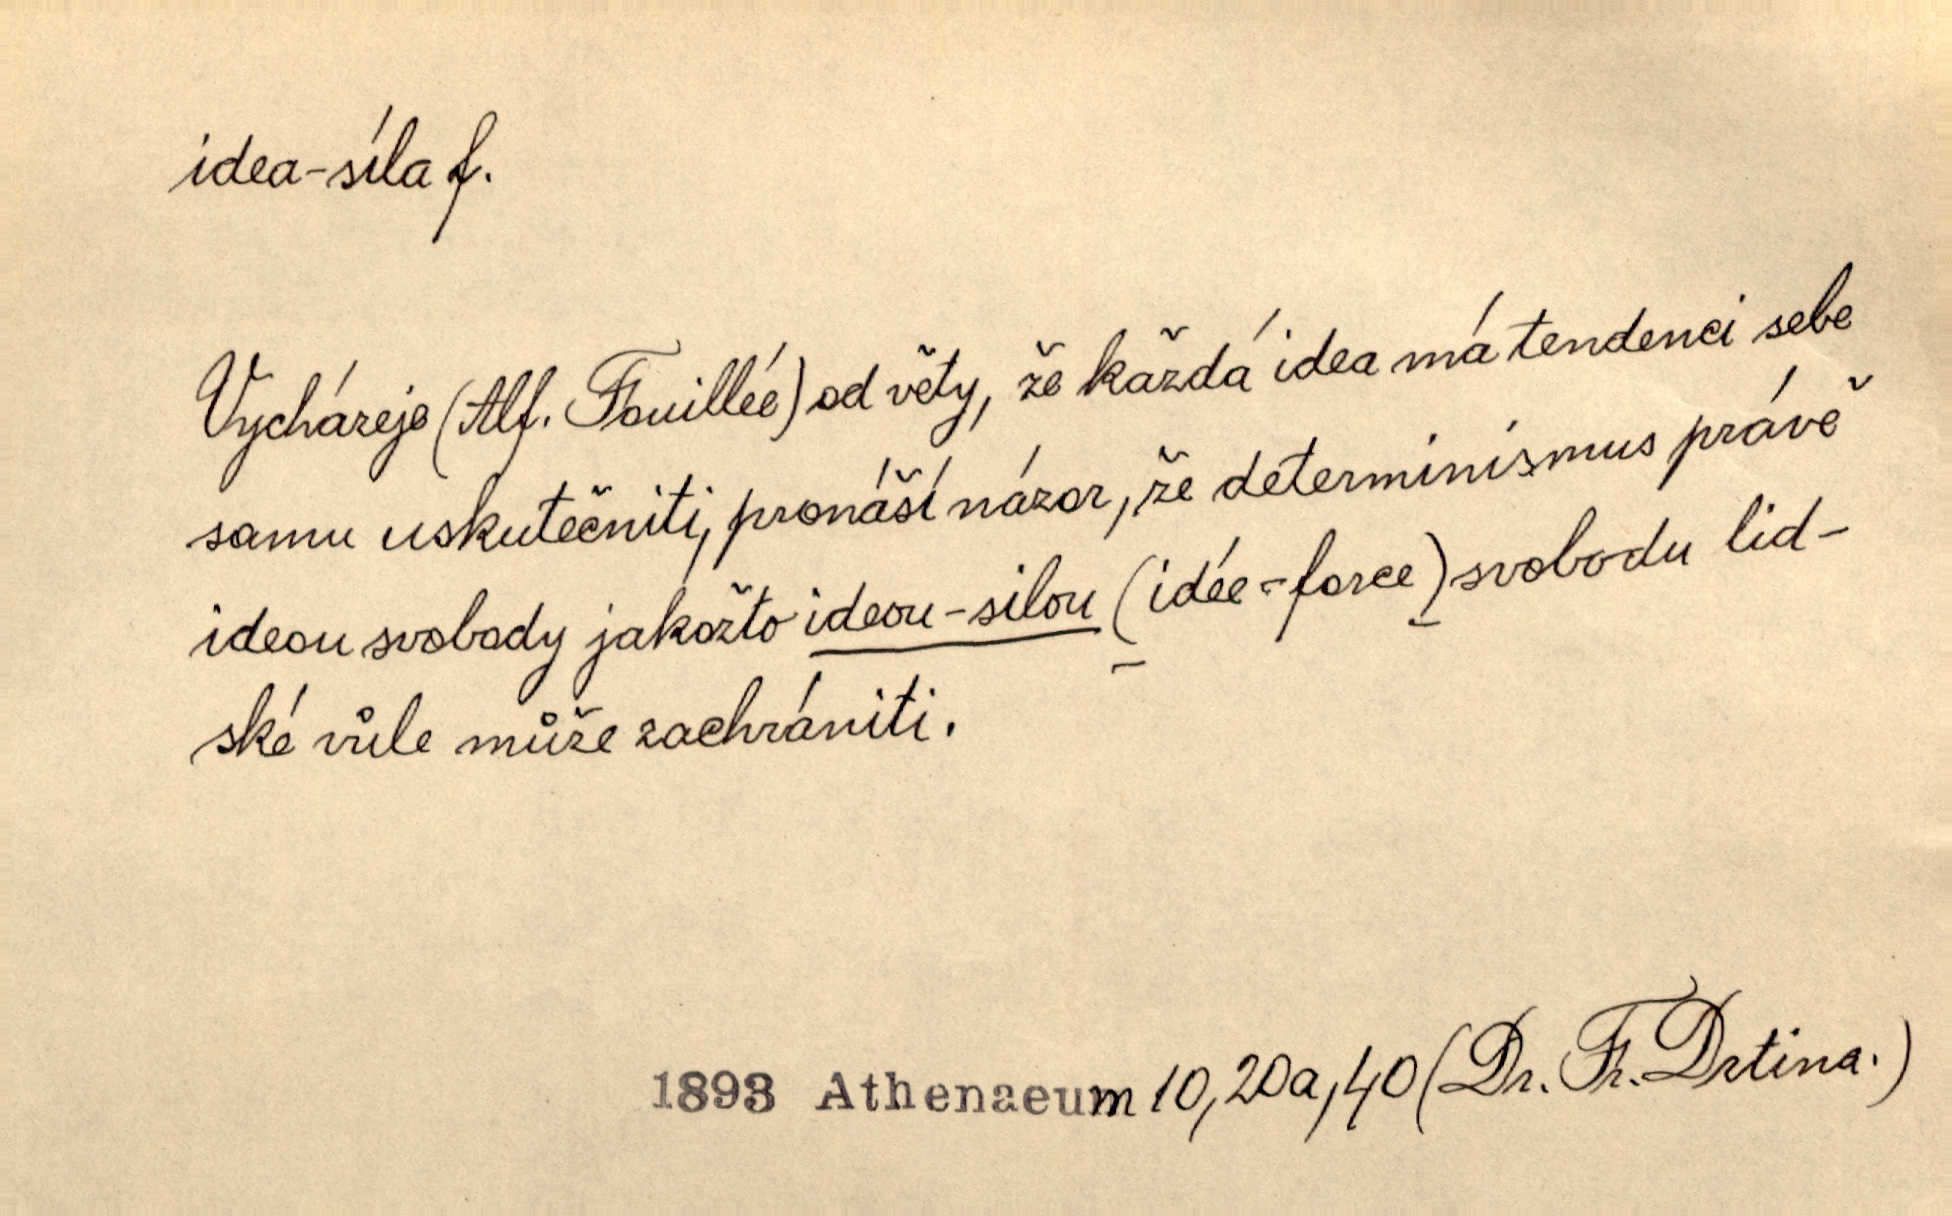 idea-síla f.
Vycházeje (Alf. Fouillée) od věty, že každá idea má tendenci sebe
samu uskutečniti, pronáší názor, že determinismus právě
ideou svobody jakožto ideou-silou (idée-force) svobodu lid-
ské vůle může zachrániti.
1893 Athenaeum 10, 20a, 40 (Dr. Fr. Drtina.)